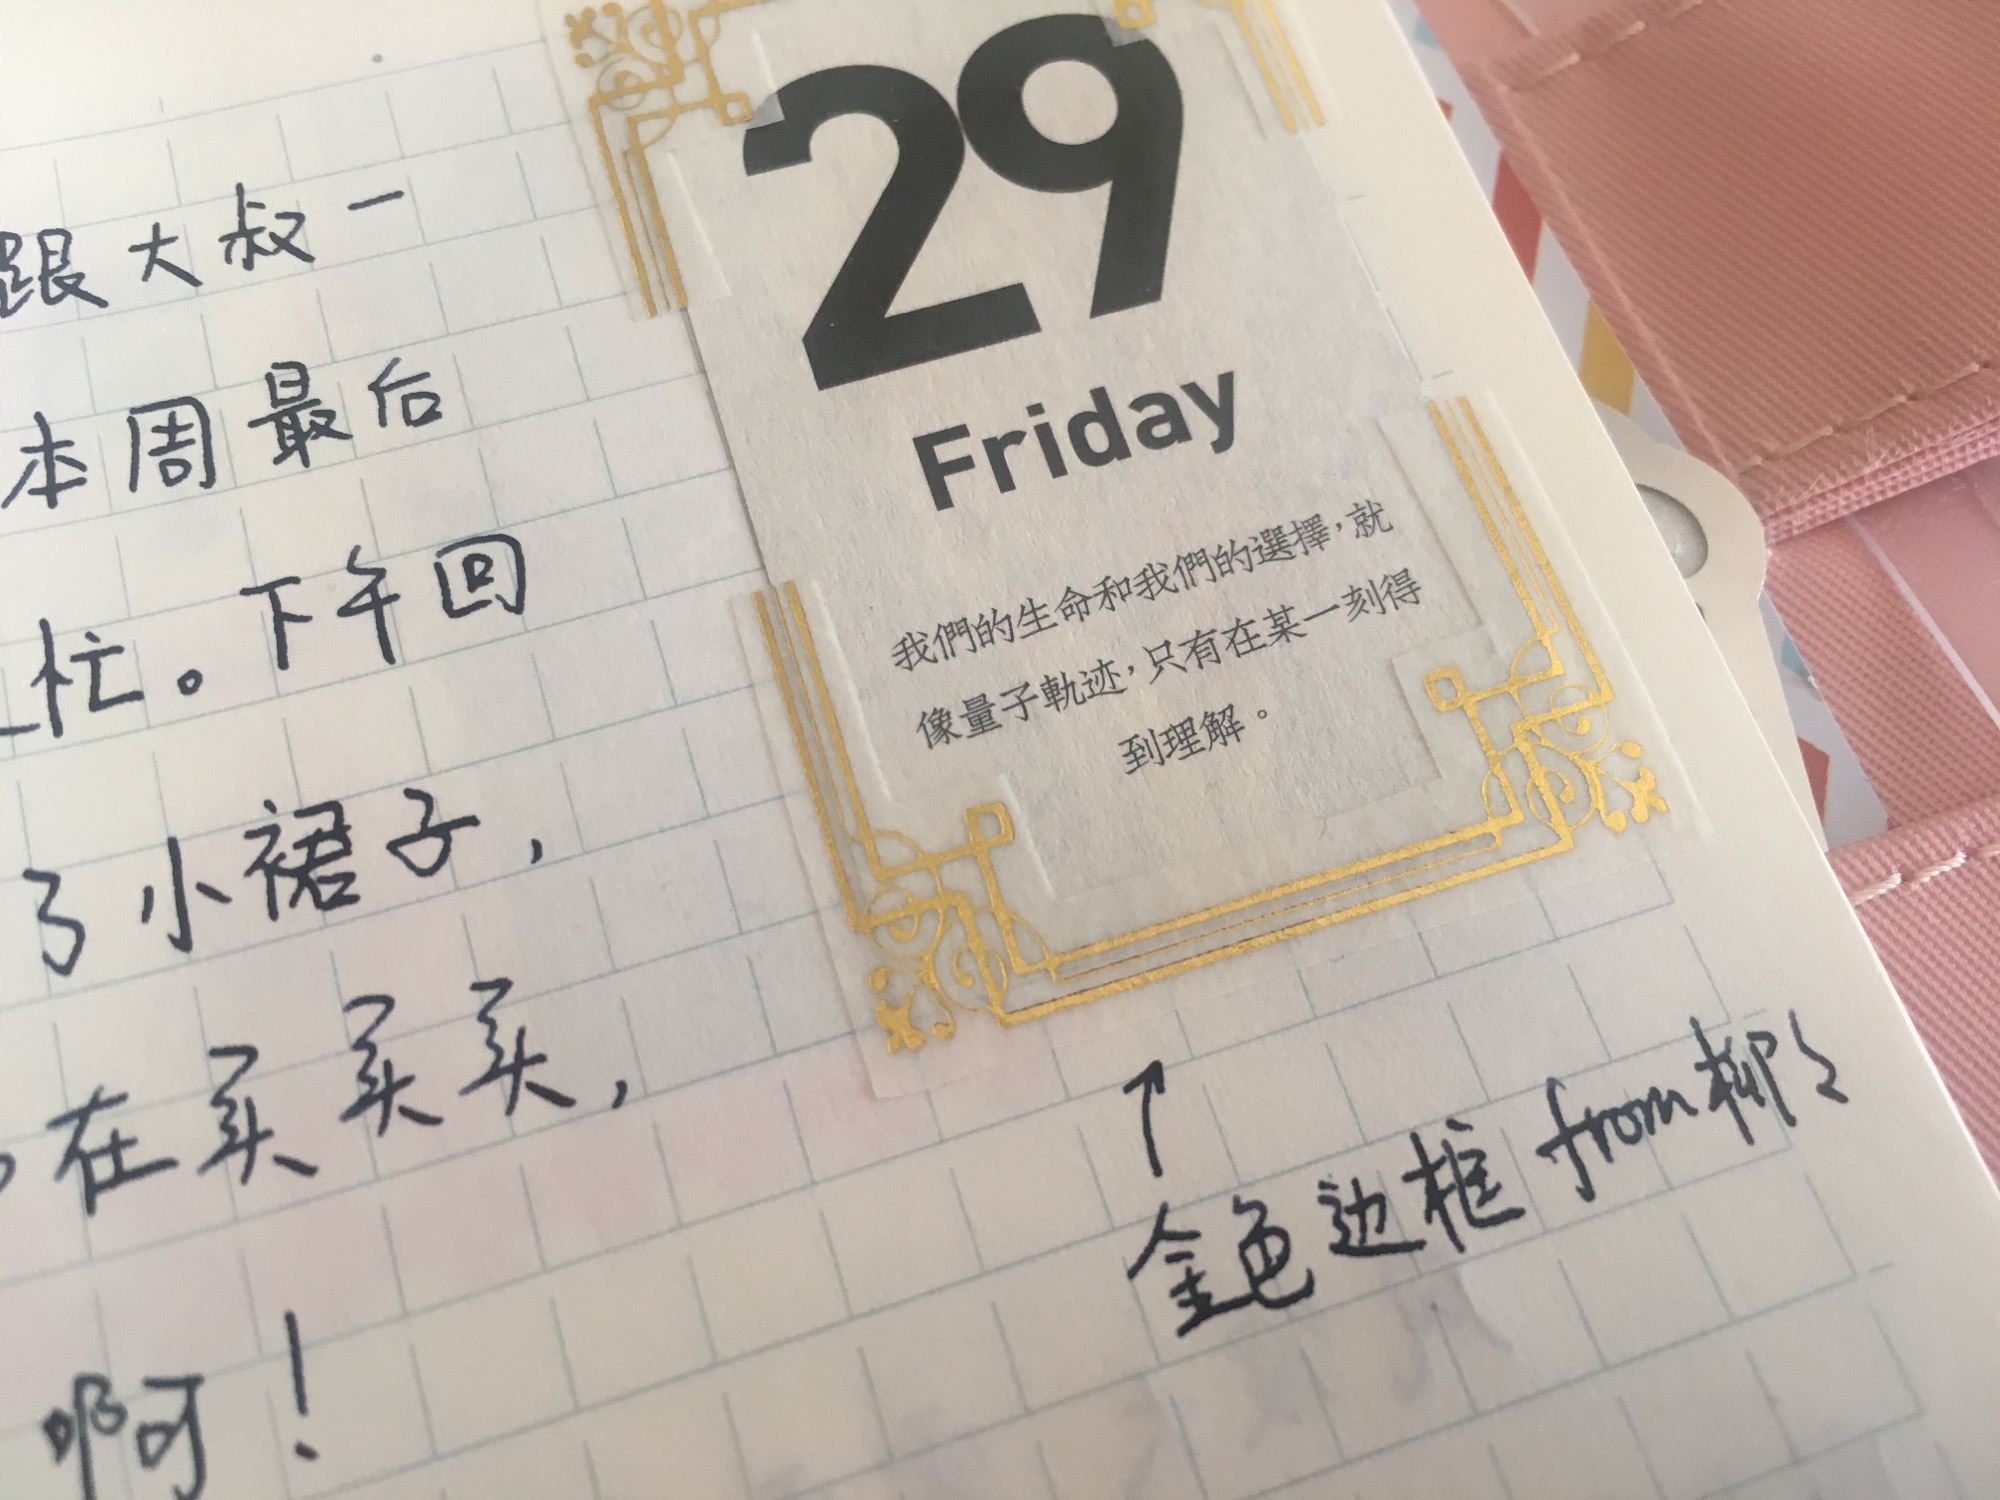 跟大叔一
本周最后
忙。下午回
了小裙子，
在买买买，
啊！
29
Friday
我們的生命和我們的選擇，就
像量子軌迹，只有在某一刻得
到理解。
↑
金色边框 from 柳